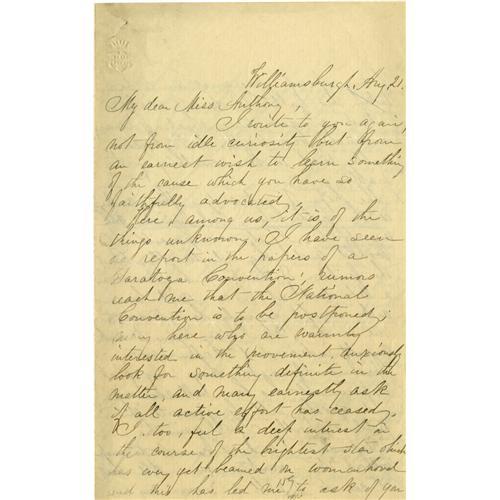 Williamsburgh, Aug. 21.
My dear Miss Anthony,
I write to you again,
not from idle curiosity but from
an earnest wish to learn something
of the cause which you have so
faithfully advocated.
Here, among us, it is, of the
things unknown. I have seen
report in the papers of a
Saratoga Convention; rumors
reach me that the National
Convention is to be postponed;
many here who are warmly
interested in the movement, anxiously
look for something definite in the
matter, and many earnestly ask
if all active effort has ceased.
I, too, feel a deep interest in
the course of the brightest star which
has ever yet beamed on womanhood
and this has led me to ask of you